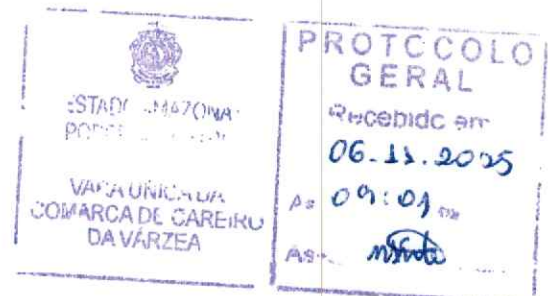 ESTADO AMAZONA
VARA UNICA DA
COMARCA DE CAREIRO
DA VÁRZEA
PROTOCOLO
GERAL
Recebido em
06.11.2005
09:01